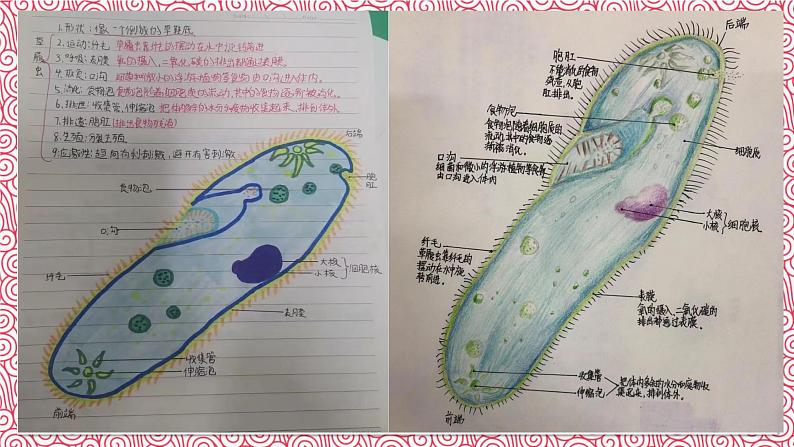 草履虫
1.形状:像一个倒放的草鞋底
2.运动:纤毛 草履虫靠纤毛的摆动在水中旋转前进
3.呼吸:表膜 氧的摄入,二氧化碳的排出都通过表膜
4.摄食:口沟 细菌和微小的浮游植物等食物由口沟进入体内。
5.消化:食物泡 食物泡随着细胞质流动,其中的食物逐渐被消化。
6.排泄:收集管,伸缩泡 把体内多余的水分和废物收集起来,排到体外。
7.排遗:胞肛(排出食物残渣)
8.生殖:分裂生殖
9.应激性:趋向有利刺激,避开有害刺激
后端
胞肛
食物泡
口沟
大核
小核
细胞核
纤毛
表膜
收集管
伸缩泡
前端
后端
胞肛
不能消化的食物
残渣,从胞
肛排出。
食物泡
食物泡随着细胞质的
流动,其中的食物逐
渐被消化。
细胞质
口沟
细菌和微小的浮游植物等食物
由口沟进入体内
大核
小核
细胞核
纤毛
草履虫靠纤毛的
摆动在水中旋
转前进。
表膜
氧的摄入、二氧化碳的
排出都通过表膜。
收集管
伸缩泡
把体内多余的水分和废物收
集起来,排到体外。
前端